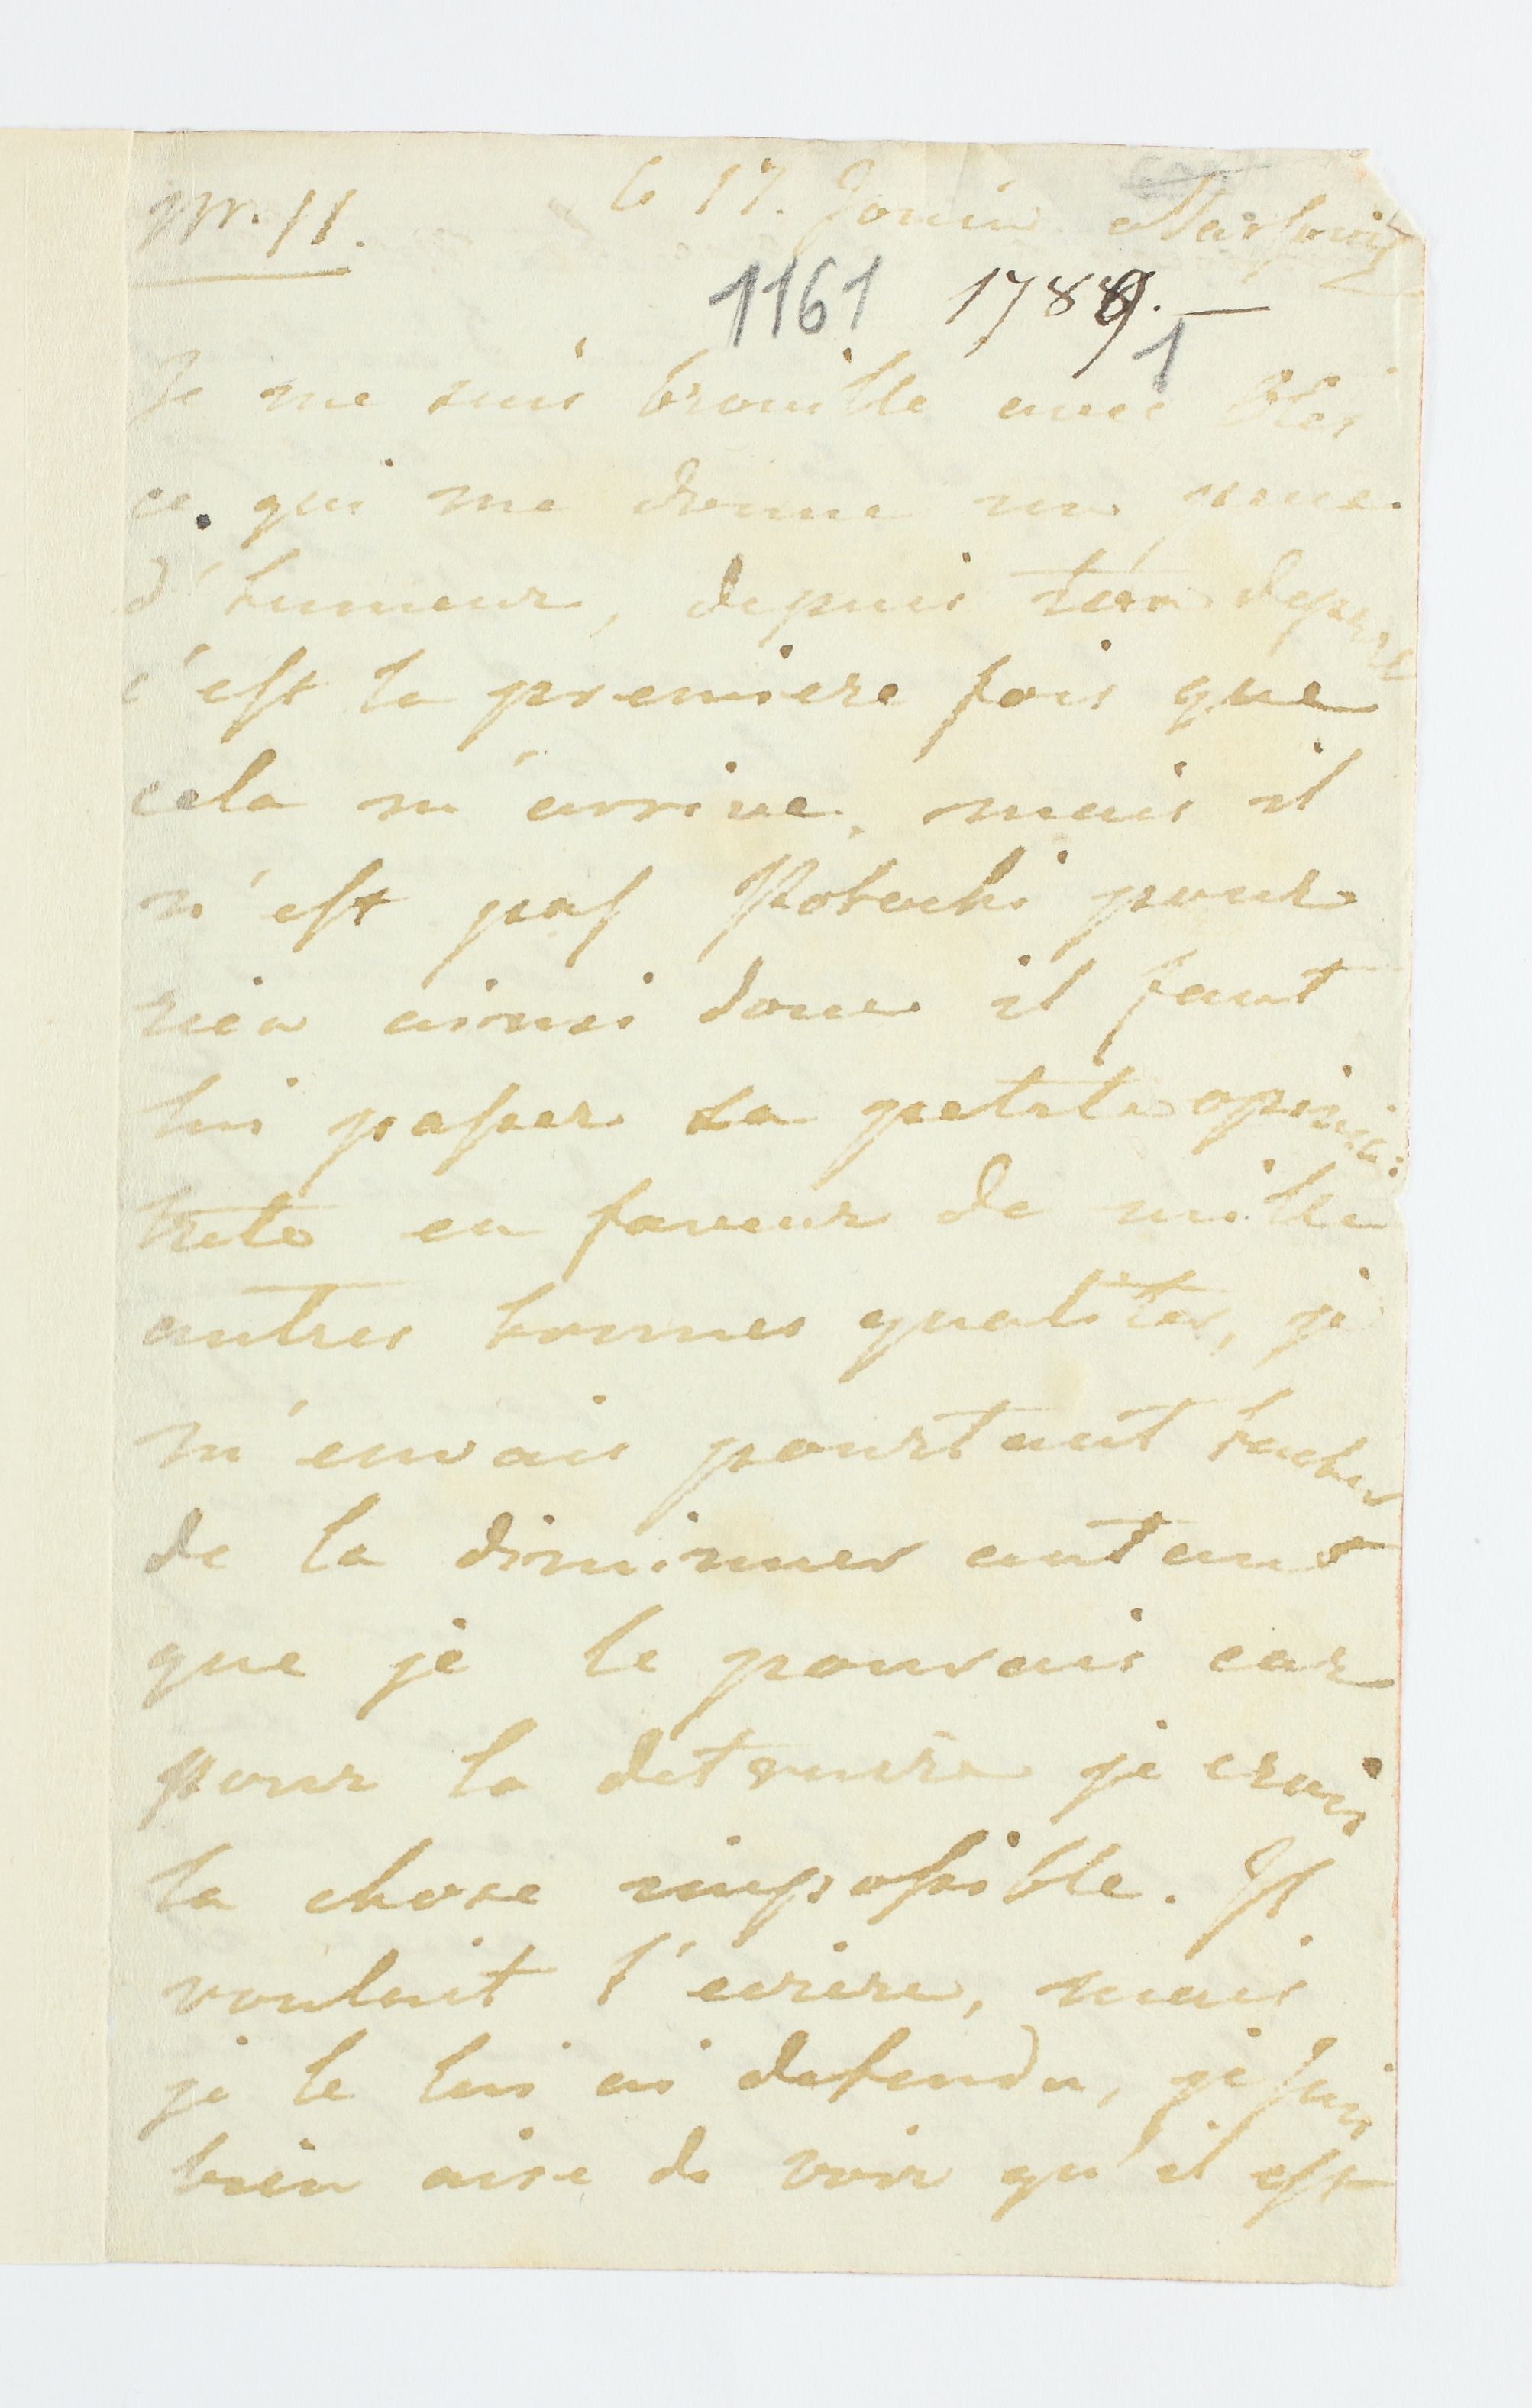 Nr. 11. le 17. Jouin a Varsovie
1161 1789. —
1
Je me suis brouille avec
ce qui me donne un peux
d'humeur, depuis ton depart
c'est la premiere fois que
cela m'arrive, mais il
n'est pas Potocki pour
rien ainsi donc il faut
lui passer sa petite opinia:
treté en faveur de mille
autres bonnes qualités, je
m'envais pourtant tacher
de la diminuer autant
que je le pouvais car
pour la detruire je crois
la chose impossible. Il
voulait t'ecrire, mais
je le lui ai defendu, je suis
bien aise de voir qu'il est